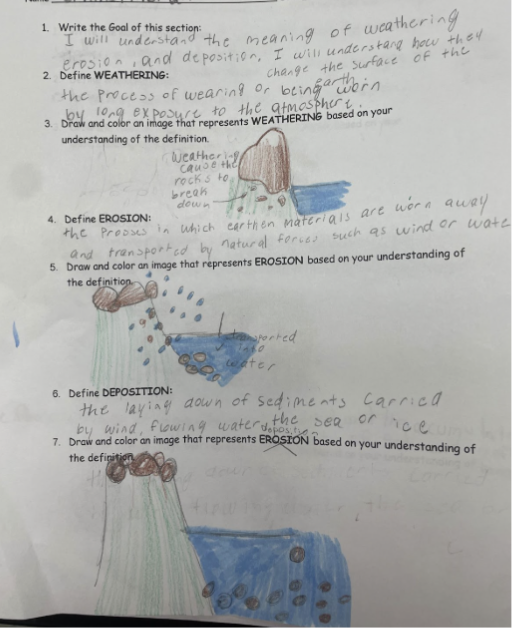 1. Write the Goal of this section:
I will understand the meaning of weathering
erosion, and deposition, I will understand how they
change the surface of the
earth.
2. Define WEATHERING:
the process of wearing or being worn
by long exposure to the atmosphere.
3. Draw and color an image that represents WEATHERING based on your
understanding of the definition.
Weathering
cause the
rocks to
break
down
4. Define EROSION:
the Prosses in which earthen Materials are worn away
and transported by natural forces such as wind or wate
5. Draw and color an image that represents EROSION based on your understanding of
the definition.
transported
into
water
6. Define DEPOSITION:
the laying down of sediments Carried
by wind, flowing water, the sea or ice
7. Draw and color an image that represents EROSION based on your understanding of
the definition.